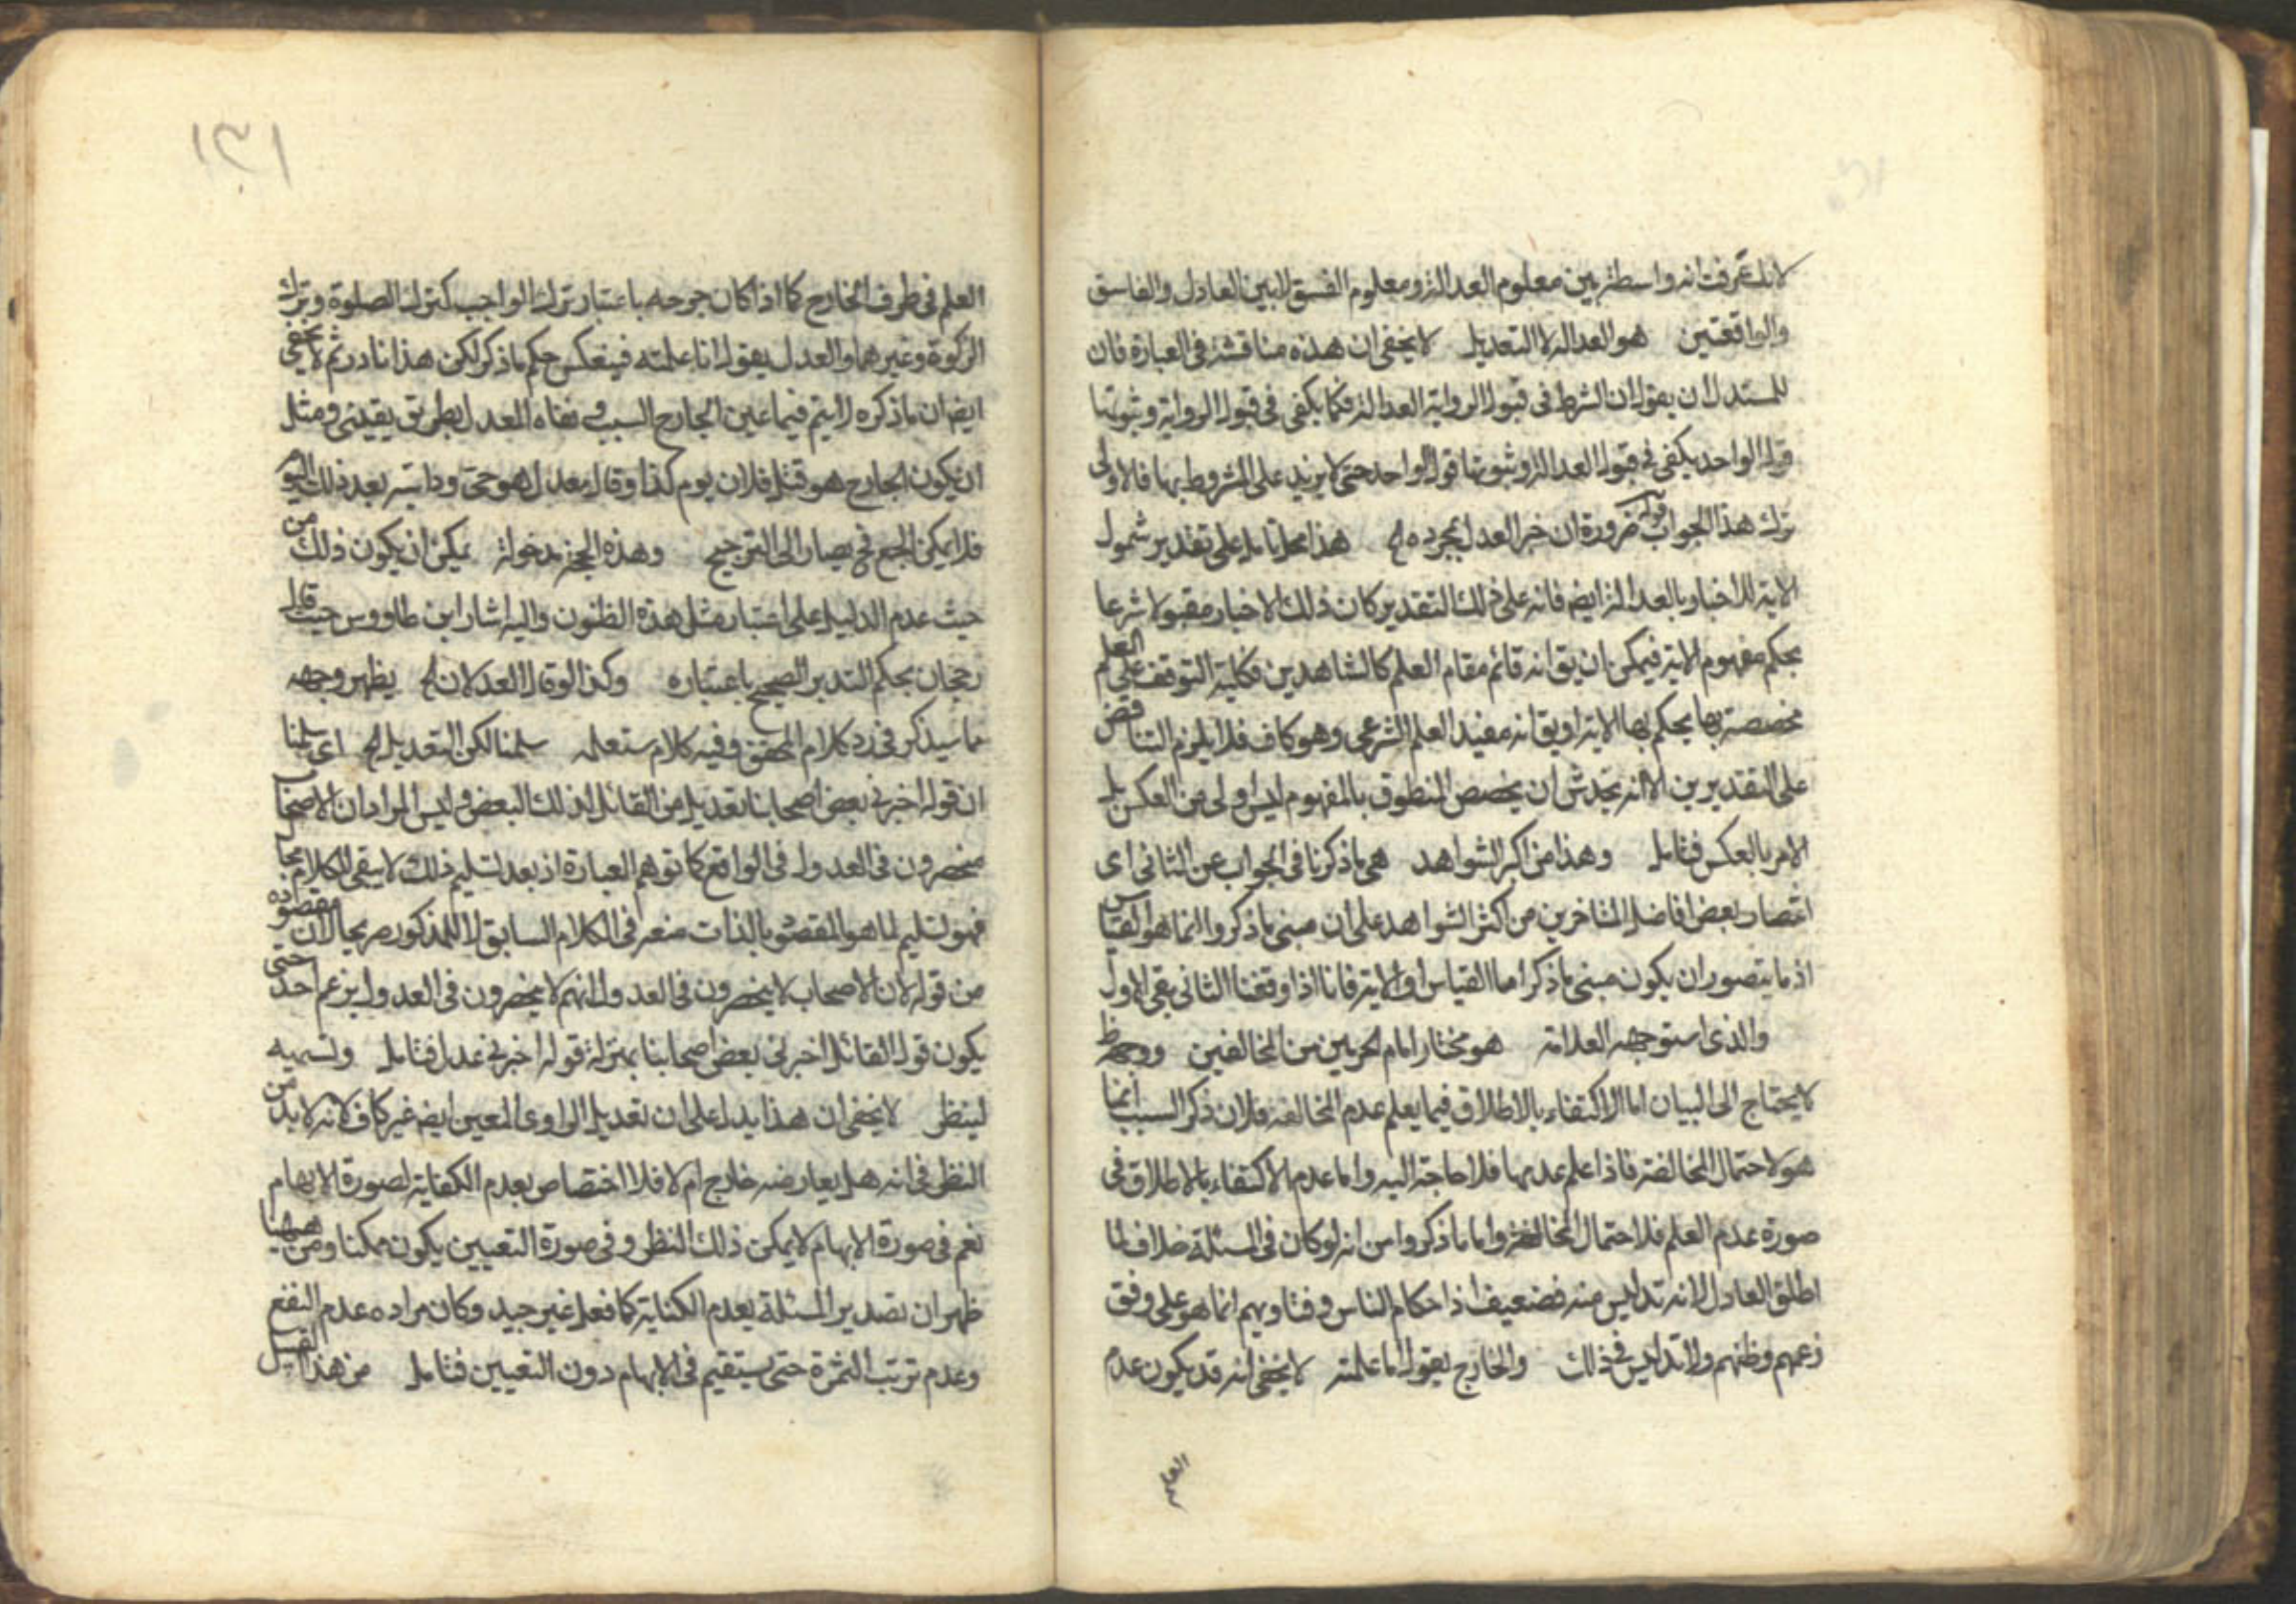 لانك عرفت انه واسطة بين معلوم العدالة ومعلوم الفسق لا بين العادل والفاسق
والواقعيين هو العدالة لا التعديل لا يخفى ان هذه مناقشة فى العبارة فان
للمستدل ان يقول ان الشرط فى قبول الرواية العدالة فكما يكفى فى قبول الرواية وثبوتها
قول الواحد يكفى فى قبول العدالة وثبوتها قول الواحد حتى لا يزيد على المشروط بها فالاولى
ترك هذا الجواب قوله ضرورة ان خبر العدل بمجرده الخ هذا محل تامل على تقدير شمول
الاية للاخبار بالعدالة ايضا فانه على ذلك التقدير كان ذلك الاخبار مقبولا شرعا
بحكم مفهوم الاية فيمكن ان يق انه قائم مقام العلم كالشاهدين فكلية التوقف على العلم
مخصصة بها بحكم بها الاية او يق انه مفيد العلم الشرعى وهو كاف فلا يلزم التناقض
على التقديرين الا انه يخدش ان يخصص المنطوق بالمفهوم ليس اولى من العكس بل
الامر بالعكس فتامل وهذا من اكبر الشواهد هى ما ذكرنا فى الجواب عن الثانى اى
اقتصار بعض افاضل المتاخرين من اكثر الشواهد على ان مبنى ما ذكروا انما هو القياس
اذ ما يتصور ان يكون مبنى ما ذكر اما القياس او الاية فانا اذا وقفنا الثانى بقى الاول
والذى استوجهه العلامة هو مختار امام الحرمين من المخالفين ووجهه ظ
لا يحتاج الى البيان اما الاكتفاء بالاطلاق فيما يعلم عدم المخالفة فلان ذكر السبب انما
هو لاحتمال المخالفة فاذا علم عدمها فلا حاجة اليه واما عدم الاكتفاء بالاطلاق فى
صورة عدم العلم فلاحتمال المخالفة واما ما ذكروا من انه لو كان فى المسئلة خلاف لما
اطلق العادل لانه تدليس منه فضعيف اذ احكام الناس وفتاويهم انما هو على وفق
زعمهم وظنهم ولا تدليس فى ذلك والخارج يقول ما علمته لا يخفى انه قد يكون عدم
العلم
١٣١
العلم فى طرف الخارج كما اذا كان جرحه باعتبار ترك الواجب كترك الصلوة وترك
الزكوة وغيرهما والعدل يقول انا علمته فينعكس حكم ما ذكر لكن هذا نادر ثم لا يخفى
ايضا ان ما ذكره لا يتم فيما عين الجارح السبب ونفاه المعدل بطريق يقينى ومثل
ان يكون الجارح هو قتل فلان يوم كذا وقال معدل هو حى ورايته بعد ذلك اليوم
فلا يمكن الجمع فح يصار الى الترجيح وهذه الحجة مدخولة يمكن ان يكون ذلك من
حيث عدم الدليل على اعتبار مثل هذه الظنون واليه اشار ابن طاووس حيث قال
رجحان يحكم التدبر الصحيح باعتباره وكذا لو قال العدلان الخ يظهر وجهه
مما سيذكر فى رد كلام المحقق وفيه كلام ستعلمه سلمنا لكن التعديل الخ اى سلمنا
ان قوله اخبرنى بعض اصحابنا تعديل من القائل لذلك البعض وليس المراد ان الاصحاب
منحصرون فى العدول فى الواقع كما توهم العبارة اذ بعد تسليم ذلك لا يبقى للكلام مجال
فهو تسليم لما هو المقصود بالذات منعه فى الكلام السابق لا للمذكور صريحا لان مقصوده
من قوله لان الاصحاب لا ينحصرون فى العدول انهم لا ينحصرون فى العدول بزعم احد حتى
يكون قول القائل اخبرنى بعض اصحابنا بمنزلة قوله اخبرنى عدل فتامل وتسميه
لينظر لا يخفى ان هذا يدل على ان تعديل الراوى المعين ايضا غير كاف لانه لا بد من
النظر فى انه هل يعارضه خارج ام لا فلا اختصاص بعدم الكفاية لصورة الابهام
نعم فى صورة الابهام لا يمكن ذلك النظر وفى صورة التعيين يكون ممكنا ومن هيهنا
ظهر ان تصدير المسئلة بعدم الكفاية كما فعل غير جيد وكان مراده عدم النفع
وعدم ترتب الثمرة حتى يستقيم فى الابهام دون التعيين فتامل من هذا القبيل